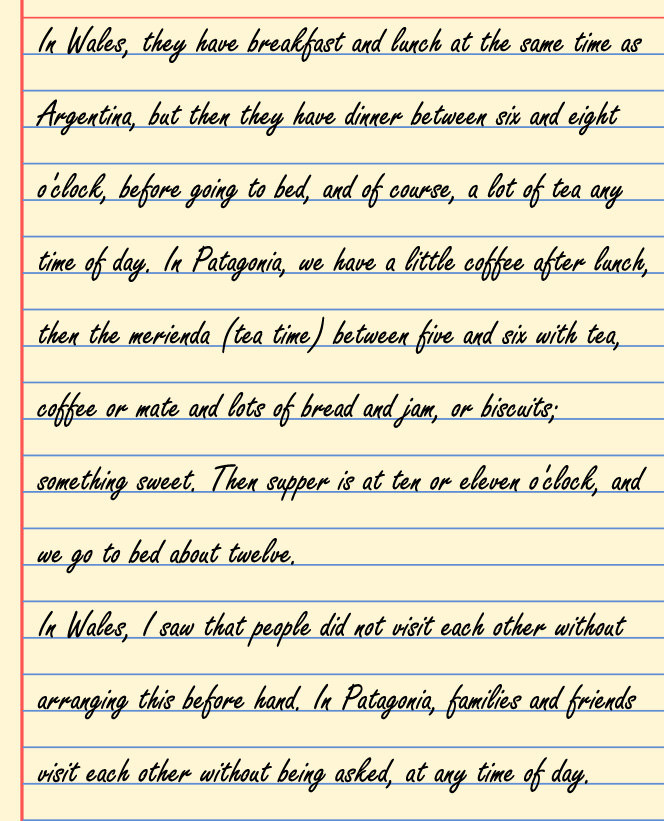 In Wales, they have breakfast and lunch at the same time as
Argentina, but then they have dinner between six and eight
o'clock, before going to bed, and of course, a lot of tea any
time of day. In Patagonia, we have a little coffee after lunch,
then the merienda (tea time) between five and six with tea,
coffee or mate and lots of bread and jam, or biscuits;
something sweet. Then supper is at ten or eleven o'clock, and
we go to bed about twelve.
In Wales, I saw that people did not visit each other without
arranging this before hand. In Patagonia, families and friends
visit each other without being asked, at any time of day.